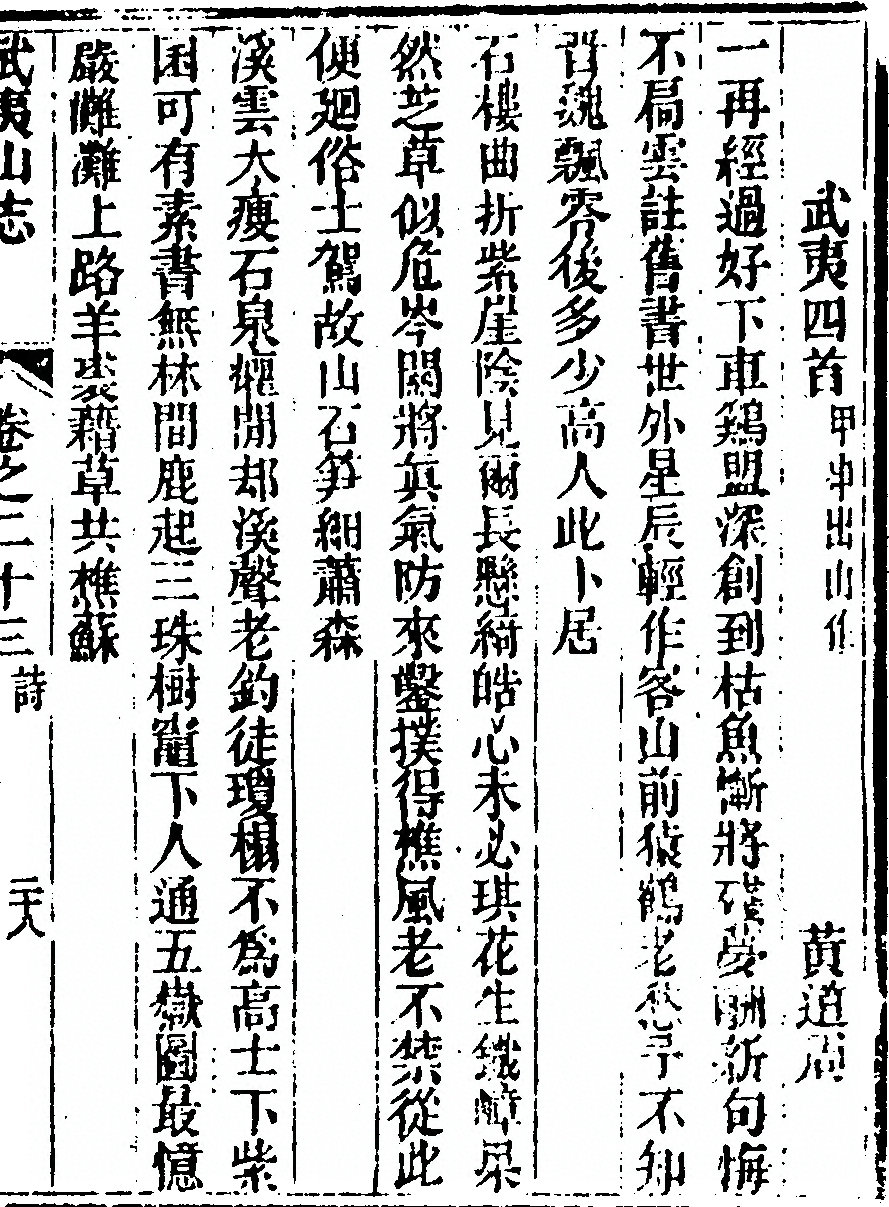 武夷四首 甲申出山作 黄道周
一再經過好下車鷄盟深創到枯魚慚將殘夢酬新句悔
不扃雲註舊書世外星辰輕作客山前猿鶴老愁予不知
晉魏飄零後多少高人此卜居
石樓曲折紫崖陰見爾長懸綺皓心未必琪花生鐵嶂果
然芝草似危岑闕將眞氣防來鑿撲得樵風老不禁從此
便廻俗士駕故山石笋細蕭森
溪雲大瘦石泉癯閒却溪聲老釣徒瓊榻不爲高士下柴
囷可有素書無林間鹿起三珠樹竈下人通五嶽圖最憶
嚴灘灘上路羊裘藉草共樵蘇
武夷山志 卷之二十三 詩 二十八